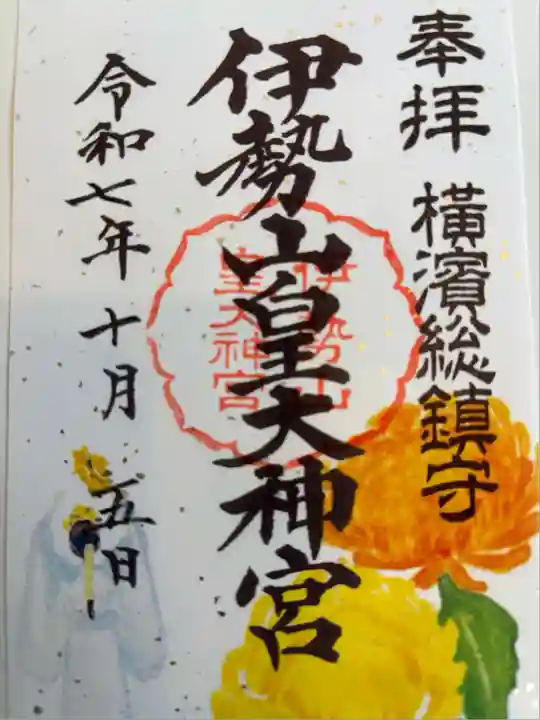 奉拝 横濱総鎮守
伊勢山皇大神宮
伊勢山
皇大神宮
令和七年十月 五日